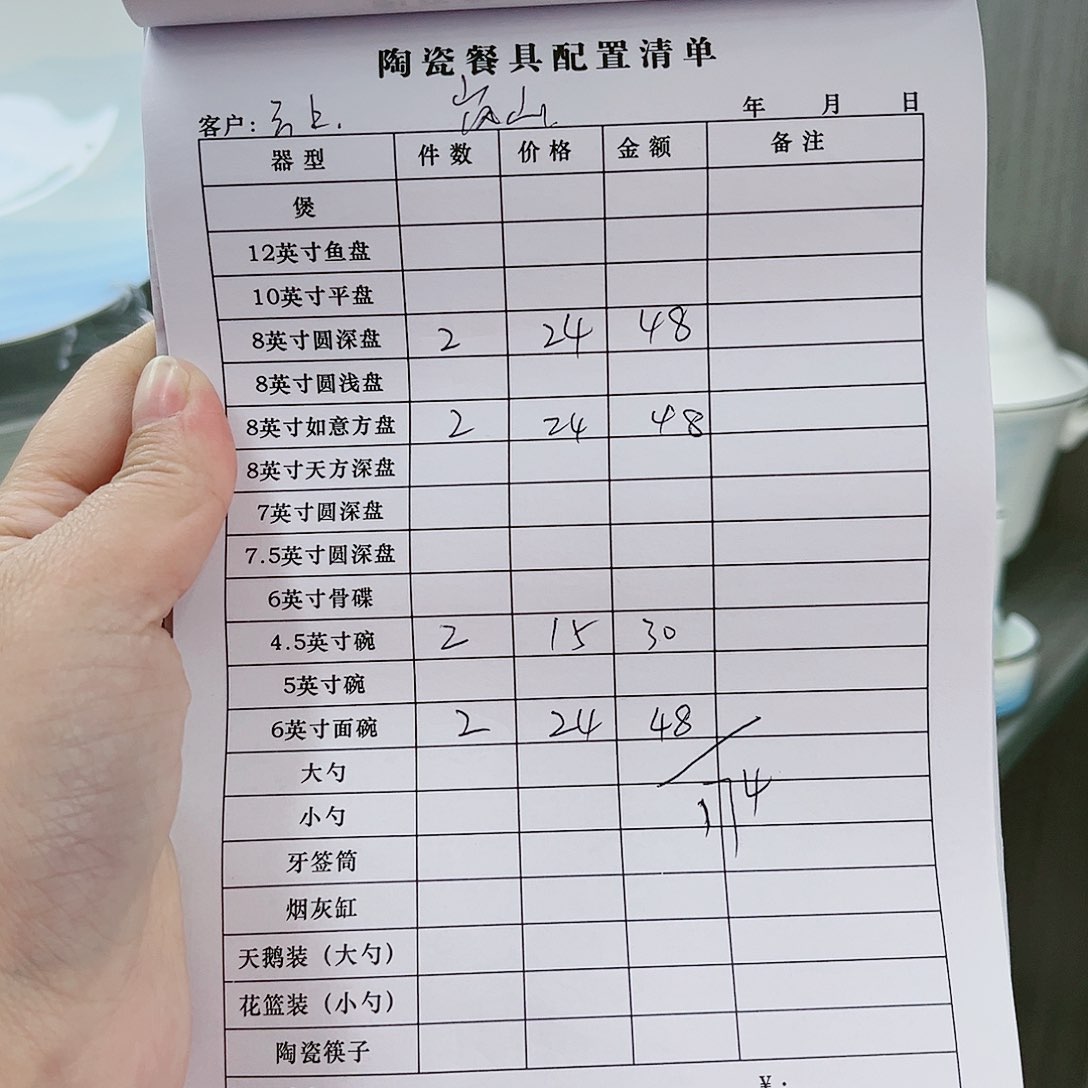 陶瓷餐具配置清单
客户：云上. 岚山 年 月 日
器型 件数 价格 金额 备注
煲
12英寸鱼盘
10英寸平盘
8英寸圆深盘 2 24 48
8英寸圆浅盘
8英寸如意方盘 2 24 48
8英寸天方深盘
7英寸圆深盘
7.5英寸圆深盘
6英寸骨碟
4.5英寸碗 2 15 30
5英寸碗
6英寸面碗 2 24 48
大勺
174
小勺
牙签筒
烟灰缸
天鹅装（大勺）
花篮装（小勺）
陶瓷筷子
¥：